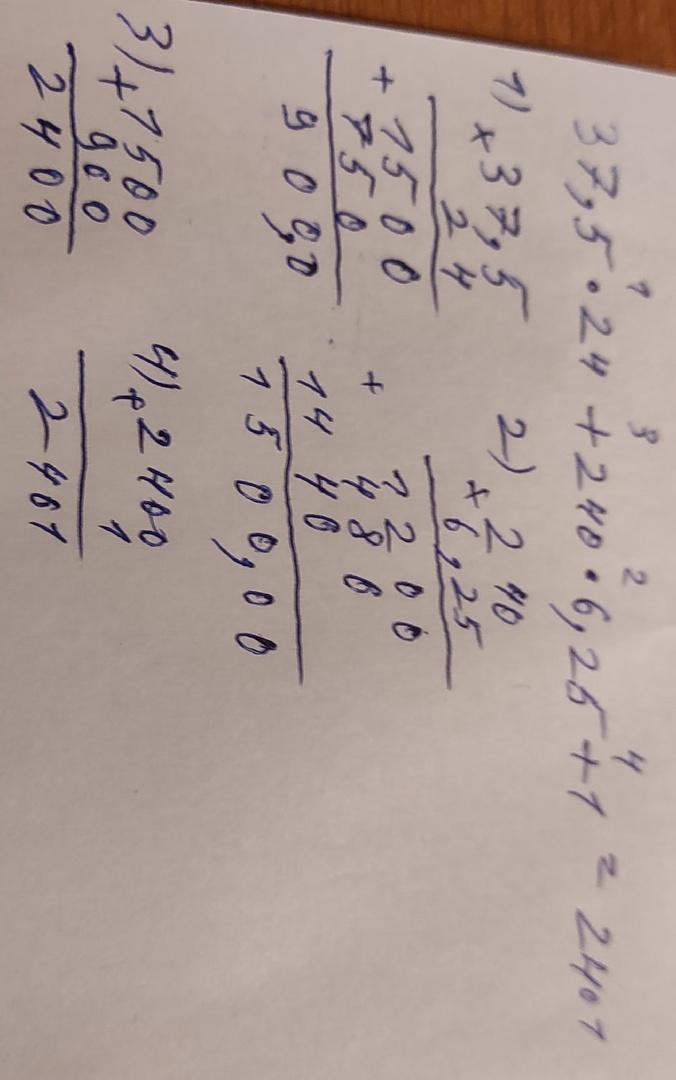 37,5 · 24 + 240 · 6,25 + 1 = 2401
1 3 2 4
1) × 37,5
24
+ 1500
750
900,0
2) × 240
6,25
1200
+ 480
1440
1500,00
3) + 1500
900
2400
4) + 2400
1
2401